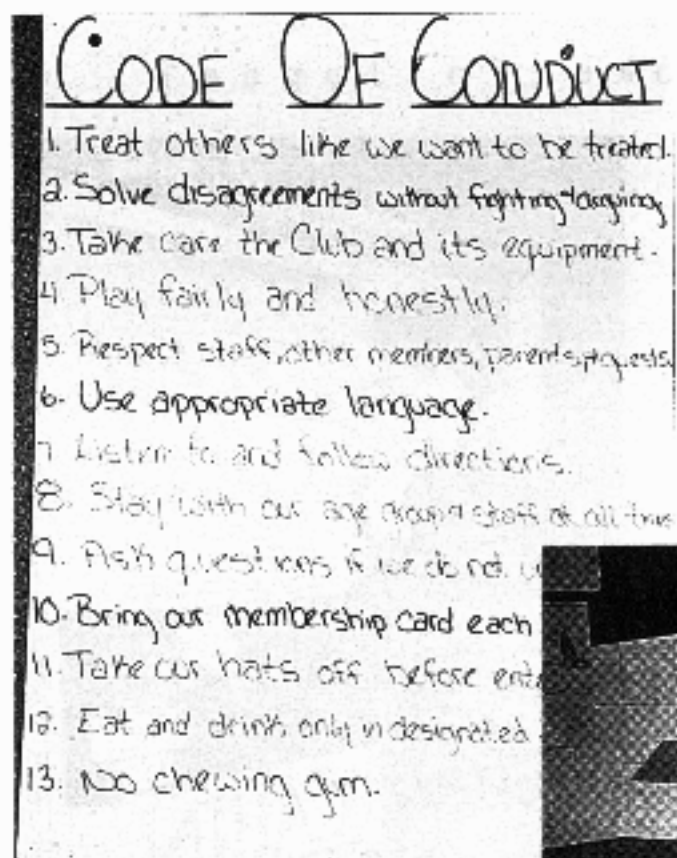 CODE OF CONDUCT
1. Treat others like we want to be treated.
2. Solve disagreements without fighting + arguing
3. Take care the Club and its equipment.
4 Play fairly and honestly.
5. Respect staff, other members, parents, + guests
6. Use appropriate language.
7. Listen to and follow directions.
8. Stay with our age group + staff at all
9. Ask questions if we do not
10. Bring our membership card each
11. Take our hats off before
12. Eat and drink only in designated
13. No chewing gum.